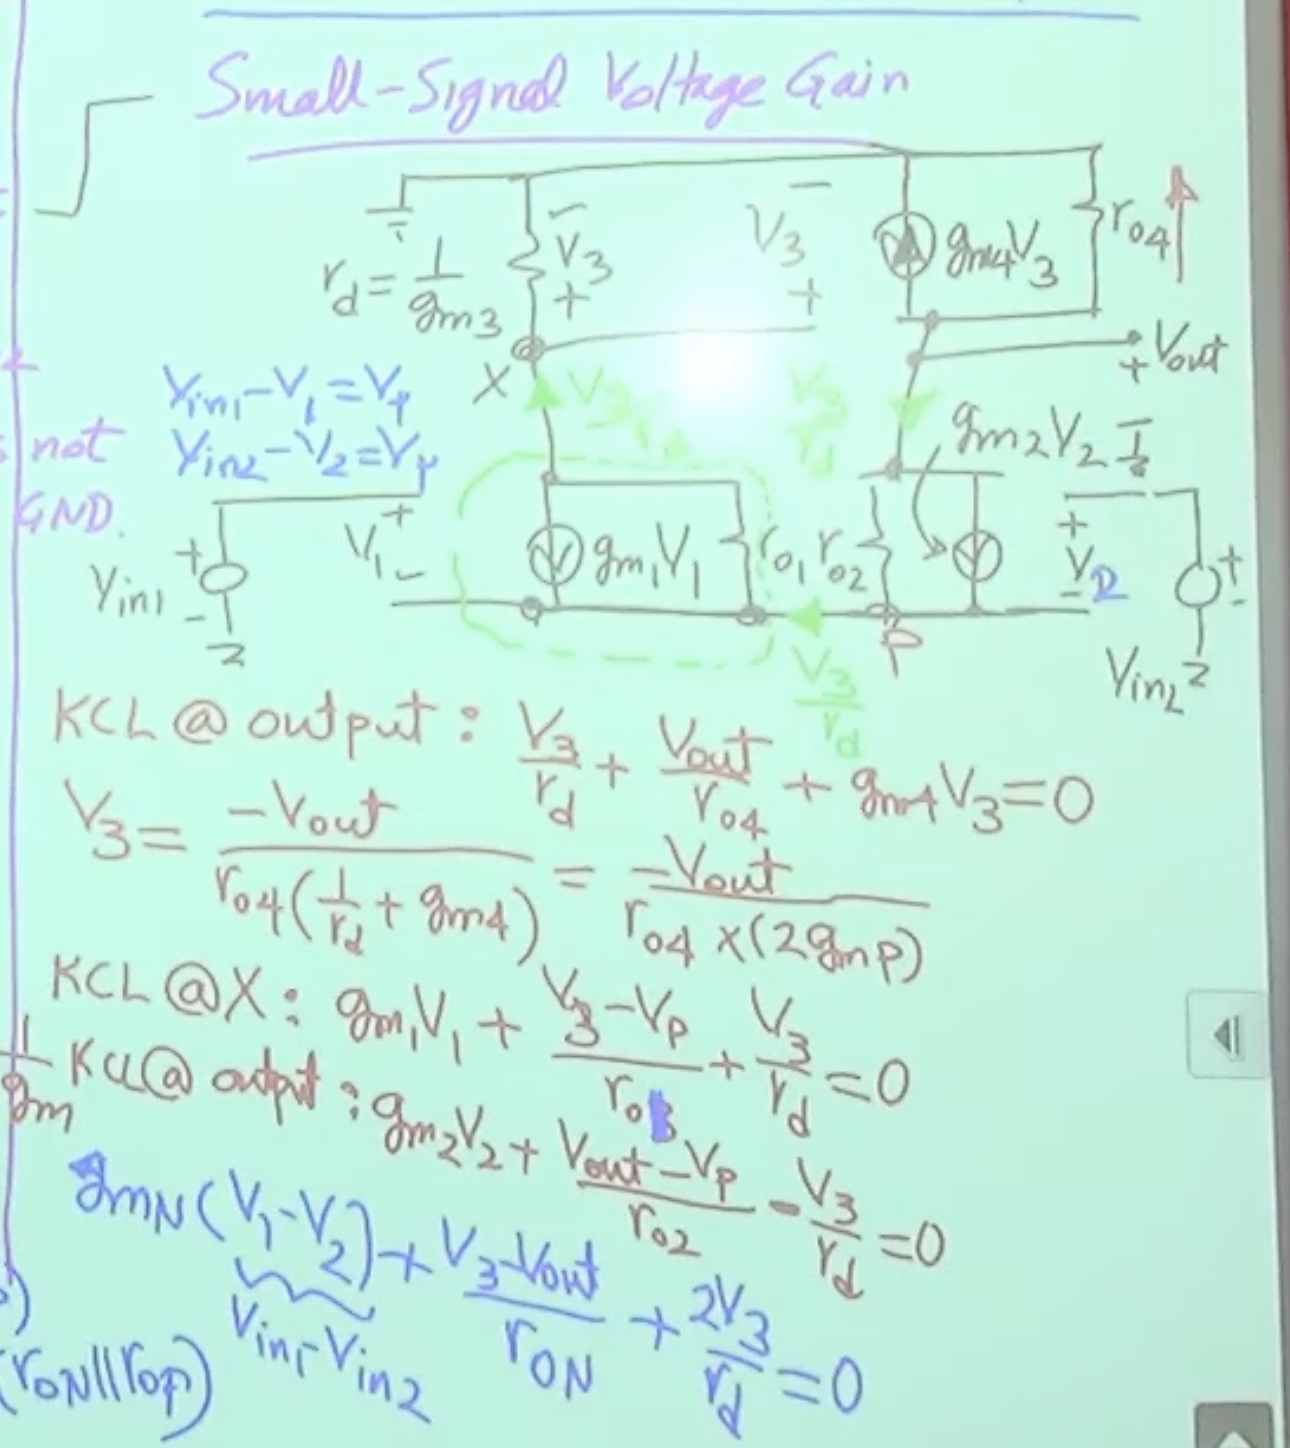 Small-Signal Voltage Gain
r_d = 1/g_m3
- V_3 +
- V_3 +
g_m4V_3
r_o4
X
+ Vout
Vin1-V_1=V_p
Vin2-V_2=V_p
not
GND.
V_3/r_d
V_3/r_d
g_m2V_2
+ Vin1 -
+ V_1 -
g_m1V_1
r_o1
r_o2
+ V_2 -
+ -
Vin2
P
V_3/r_d
KCL @ output : V_3/r_d + Vout/r_o4 + g_m4V_3=0
V_3 = -Vout/r_o4(1/r_d + g_m4) = -Vout/r_o4 x(2g_mp)
KCL @X : g_m1V_1 + V_3-V_p/r_o1 + V_3/r_d =0
1/gm
KCL @ output : g_m2V_2 + Vout-V_p/r_o2 - V_3/r_d =0
g_mN(V_1-V_2) + V_3-Vout/r_ON + 2V_3/r_d =0
Vin1-Vin2
(r_ON||r_op)